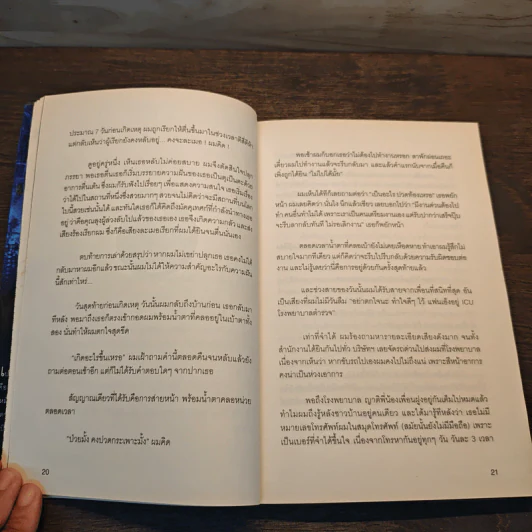 ประมาณ 7 วันก่อนเกิดเหตุ ผมถูกเรียกให้ตื่นขึ้นมาในช่วงเวลาตีสี่ตีห้า
แต่กลับเห็นว่าผู้เรียกยังคงหลับอยู่... คงจะละเมอ ! ผมคิด !
ดูอยู่ครู่หนึ่ง เห็นเธอหลับไม่ค่อยสบาย ผมจึงตัดสินใจปลุก
ภรรยา พอเธอตื่นเธอก็เริ่มบรรยายความฝันของเธอเป็นตุเป็นตะด้วย
อาการตื่นเต้น ซึ่งผมก็รับฟังไปเรื่อยๆ เพื่อแสดงความสนใจ
ว่าได้ไปในสถานที่หนึ่งซึ่งสวยมากๆ สวยจนไม่คิดว่าจะมีสถานที่บนโลก
ใบนี้สวยเช่นนั้นได้
อยู่ ว่าคือคุณลุงผู้ล่วงลับไปแล้วของเธอเอง เธอจึงเกิดความกลัว และส่ง
เสียงร้องเรียกผม ซึ่งก็คือเสียงละเมอเรียกที่ผมได้ยินจนตื่นนั่นเอง
ตบท้ายการเล่าด้วยสรุปว่า หากผมไม่เขย่าปลุกเธอ เธอคงไม่ได้
กลับมาหาผมอีกแล้ว ขณะนั้นผมไม่ได้ให้ความสำคัญอะไรกับความฝัน
นี้สักเท่าไหร่...
วันสุดท้ายก่อนเกิดเหตุ วันนั้นผมกลับถึงบ้านก่อน เธอกลับมา
ทีหลัง พอมาถึงเธอก็ตรงเข้ากอดผมพร้อมน้ำตาที่คลออยู่ในเบ้าตาทั้ง
สอง นั่นทำให้ผมตกใจสุดขีด
"เกิดอะไรขึ้นเหรอ" ผมเฝ้าถามคำนี้ตลอดคืนจนหลับแล้วยัง
ถามต่อตอนเช้าอีก แต่ก็ไม่ได้รับคำตอบใดๆ จากปากเธอ
สัญญาณเดียวที่ได้รับคือการส่ายหน้า พร้อมน้ำตาคลอหน่วย
ตลอดเวลา
"ป่วยมั้ง คงปวดกระเพาะมั้ง" ผมคิด
20
พอเช้าผมก็บอกเธอว่าไม่ต้องไปทำงานหรอก ลาพักก่อนเถอะ
เดี๋ยวผมไปทำงานแล้วจะรีบกลับมา แต่แล้วคำเรานับจากเมื่อคืนก็
เพิ่งถูกได้ยิน "ไม่ไปได้มั้ย"
ผมเห็นได้ทีก็เลยถามต่อว่า "เป็นอะไรปวดท้องเหรอ" เธอพยัก
หน้า ผมเลยคิดว่า นั่นไง นึกแล้วเชียว เลยบอกไปว่า "มีงานด่วนต้องไป
ทำ คนอื่นทำไม่ได้ เพราะเราเป็นคนเตรียมงานเอง แต่รับปากว่าเสร็จปุ๊บ
จะรีบลากลับทันที ไม่รอเลิกงาน" เธอก็พยักหน้า
ตลอดเวลาน้ำตาที่คลอเบ้ายังไม่เคยเหือดหาย ทำเอาผมรู้สึกไม่
สบายใจมากทีเดียว แต่ก็คิดว่าจะรีบไปรีบกลับด้วยความรับผิดชอบต่อ
งาน และไม่รู้เลยว่านี่คือการอยู่ด้วยกันครั้งสุดท้ายแล้ว
และช่วงสายของวันนั้นผมได้รับสายจากเพื่อนที่สนิทที่สุด อัน
เป็นเสียงที่ผมไม่มีวันลืม "อย่าตกใจนะ ทำใจดีๆ ไว้ แฟนเอ็งอยู่ ICU
โรงพยาบาลตำรวจ"
เท่าที่จำได้ ผมร้องถามหารายละเอียดเสียงดังมาก จนทั้ง
สำนักงานได้ยินกันไปทั่ว บริษัทฯ เลยจัดรถด่วนไปส่งผมที่โรงพยาบาล
เนื่องจากเห็นว่า หากขับรถไปเองผมคงไปไม่ถึงแน่ เพราะสีหน้าอาการ
คงน่าเป็นห่วงเอาการ
พอถึงโรงพยาบาล ญาติพี่น้องเพื่อนฝูงอยู่กันเต็มไปหมดแล้ว
ทำไมผมถึงรู้หลังชาวบ้านอยู่คนเดียว และได้มารู้ทีหลังว่า เธอไม่มี
หมายเลขโทรศัพท์ผมในสมุดโทรศัพท์ (สมัยนั้นยังไม่มีมือถือ) เพราะ
เป็นเบอร์ที่จำได้ขึ้นใจ เนื่องจากโทรหากันอยู่ทุกๆ วัน วันละ 3 เวลา
21